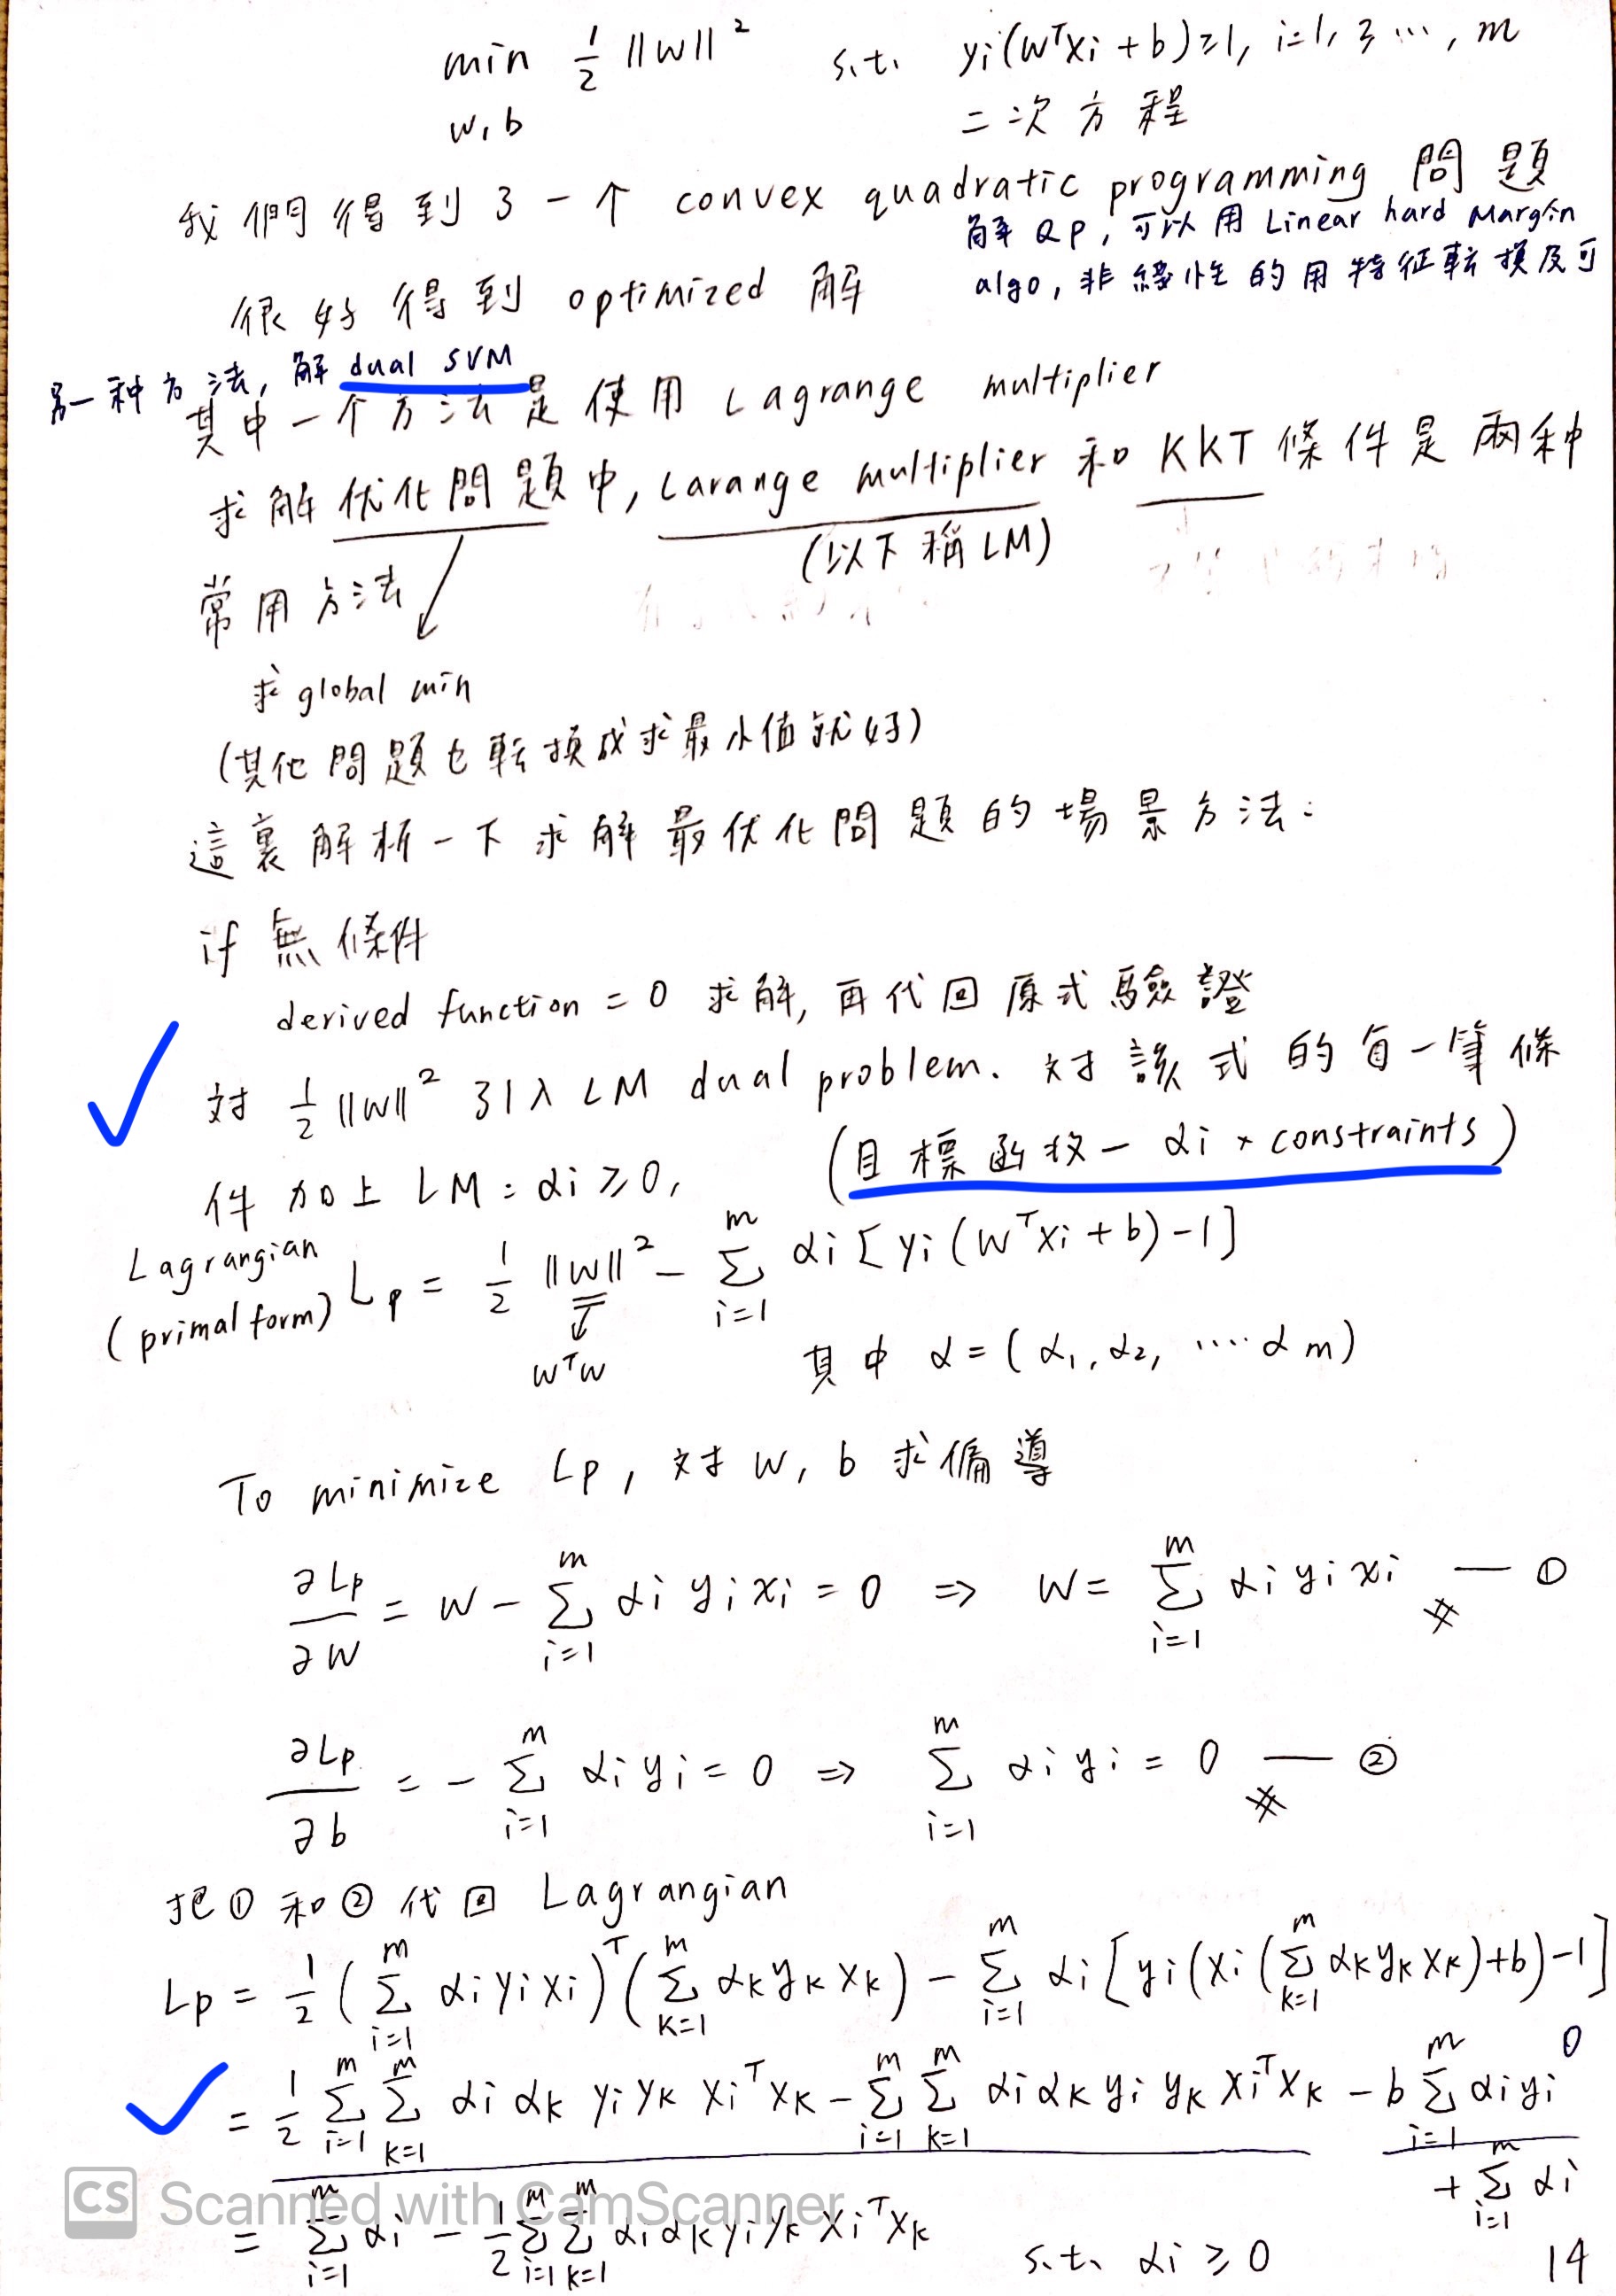 min 1/2 ||W||² s.t. yi(WᵀXi + b)≥1, i=1, 2 ..., m
w, b
二次方程
我們得到了一个 convex quadratic programming 問題
解 QP, 可以用 Linear hard Margin
algo, 非線性的用特征転換及可
很好得到 optimized 解
另一种方法, 解 dual SVM
其中一个方法是使用 Lagrange multiplier
求解优化問題中, Larange multiplier 和 KKT 條件是兩种
(以下稱 LM)
常用方法
求 global min
(其他問題也転換成求最小值就好)
這裏解析一下求解最优化問題的場景方法:
if 無條件
derived function = 0 求解, 再代回原式驗證
対 1/2 ||W||² 引入 LM dual problem. 対該式的每一筆條
件加上 LM: αi ≥ 0, (目標函数 - αi × constraints)
Lagrangian
(primal form) Lp = 1/2 ||W||² - Σ_{i=1}^{m} αi [yi (WᵀXi + b) - 1]
WᵀW
其中 α = (α₁, α₂, .... αm)
To minimize Lp, 対 w, b 求偏導
∂Lp/∂W = W - Σ_{i=1}^{m} αi yi xi = 0 ⇒ W = Σ_{i=1}^{m} αi yi xi # — ①
∂Lp/∂b = - Σ_{i=1}^{m} αi yi = 0 ⇒ Σ_{i=1}^{m} αi yi = 0 # — ②
把①和②代回 Lagrangian
Lp = 1/2 (Σ_{i=1}^{m} αi yi xi)ᵀ (Σ_{k=1}^{m} αk yk xk) - Σ_{i=1}^{m} αi [yi (xi (Σ_{k=1}^{m} αk yk xk) + b) - 1]
= 1/2 Σ_{i=1}^{m} Σ_{k=1}^{m} αi αk yi yk xiᵀxk - Σ_{i=1}^{m} Σ_{k=1}^{m} αi αk yi yk xiᵀxk - b Σ_{i=1}^{m} αi yi 0
+ Σ_{i=1}^{m} αi
= Σ_{i=1}^{m} αi - 1/2 Σ_{i=1}^{m} Σ_{k=1}^{m} αi αk yi yk xiᵀxk s.t. αi ≥ 0
14
CS Scanned with CamScanner